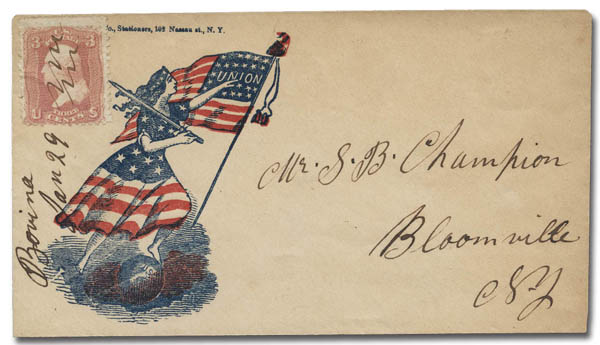 o., Stationers, 102 Nassau st., N. Y.
3 3
U CENTS S
UNION
Bovina
Jan 29
Mr. S. B. Champion
Bloomville
NY